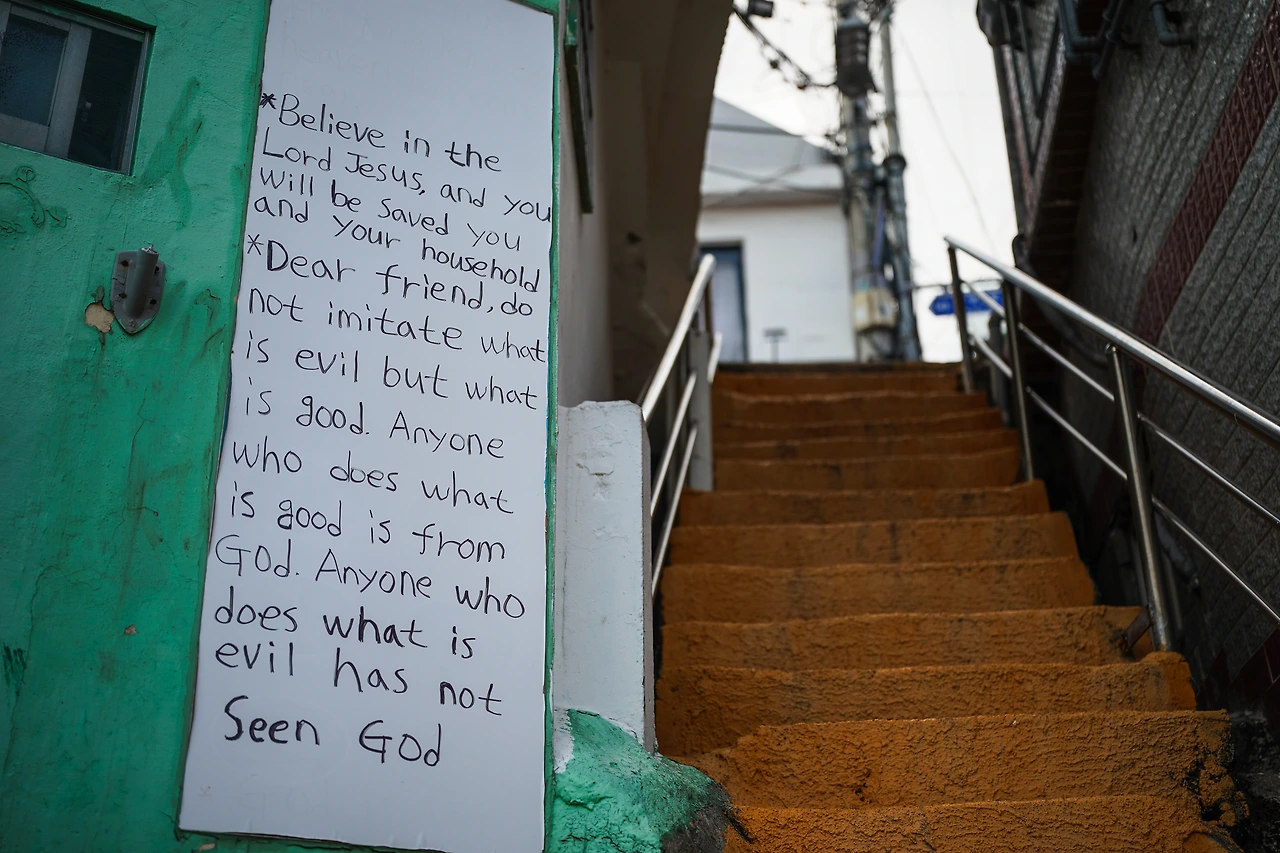 *Believe in the
Lord Jesus, and you
will be saved you
and your household
*Dear friend, do
not imitate what
is evil but what
is good. Anyone
who does what
is good is from
God. Anyone who
does what is
evil has not
Seen God